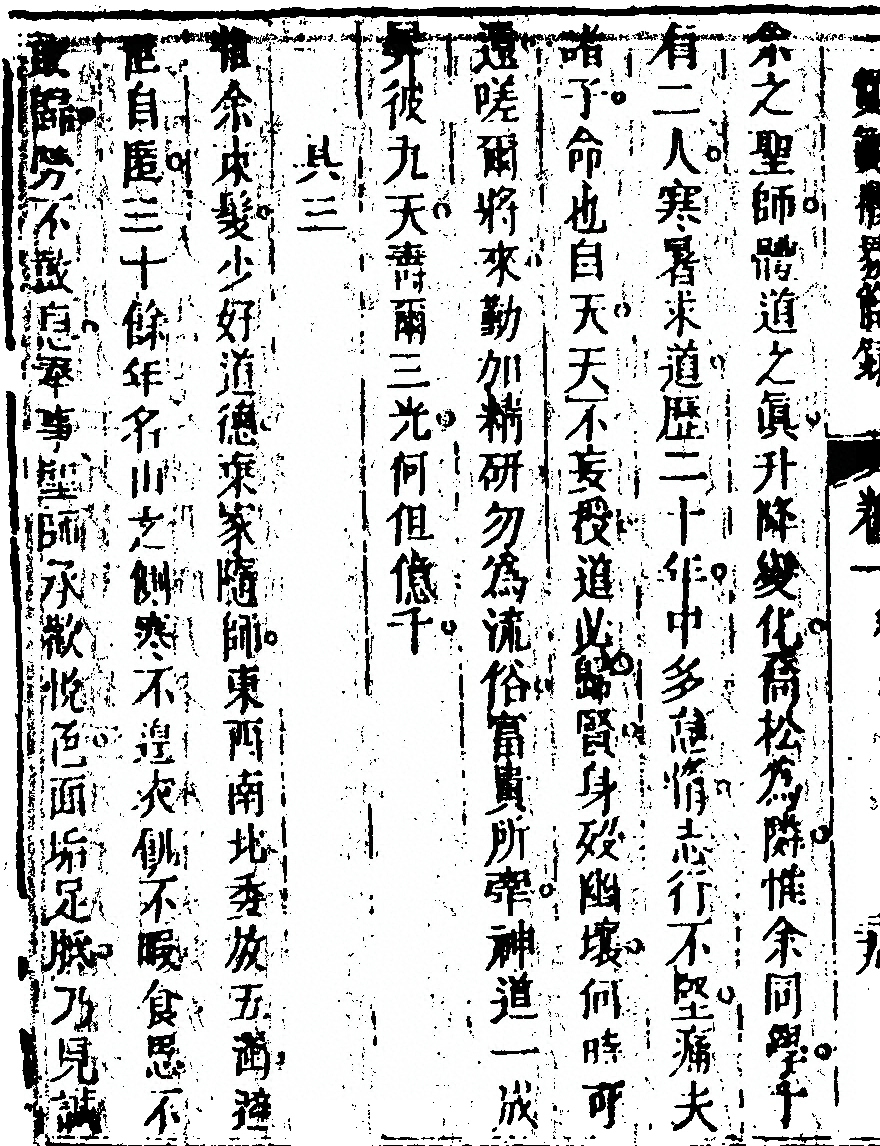 卷一
余之聖師體道之眞升降變化喬松為隣惟余同學十
有二人寒暑求道歷二十年中多怠惰志行不堅痛夫
諸子命也自天天不妄授道必歸賢身歿幽壤何時可
還嗟爾將來勤加精研勿為流俗富貴所牽神道一成
昇彼九天壽爾三光何但億千
其三
惟余束髮少好道德棄家隨師東西南北委放五濁避
世自匿三十餘年名山之側寒不遑衣飢不暇食思不
敢歸勞不敢息奉事聖師承歡悅色面垢足胝乃見誠